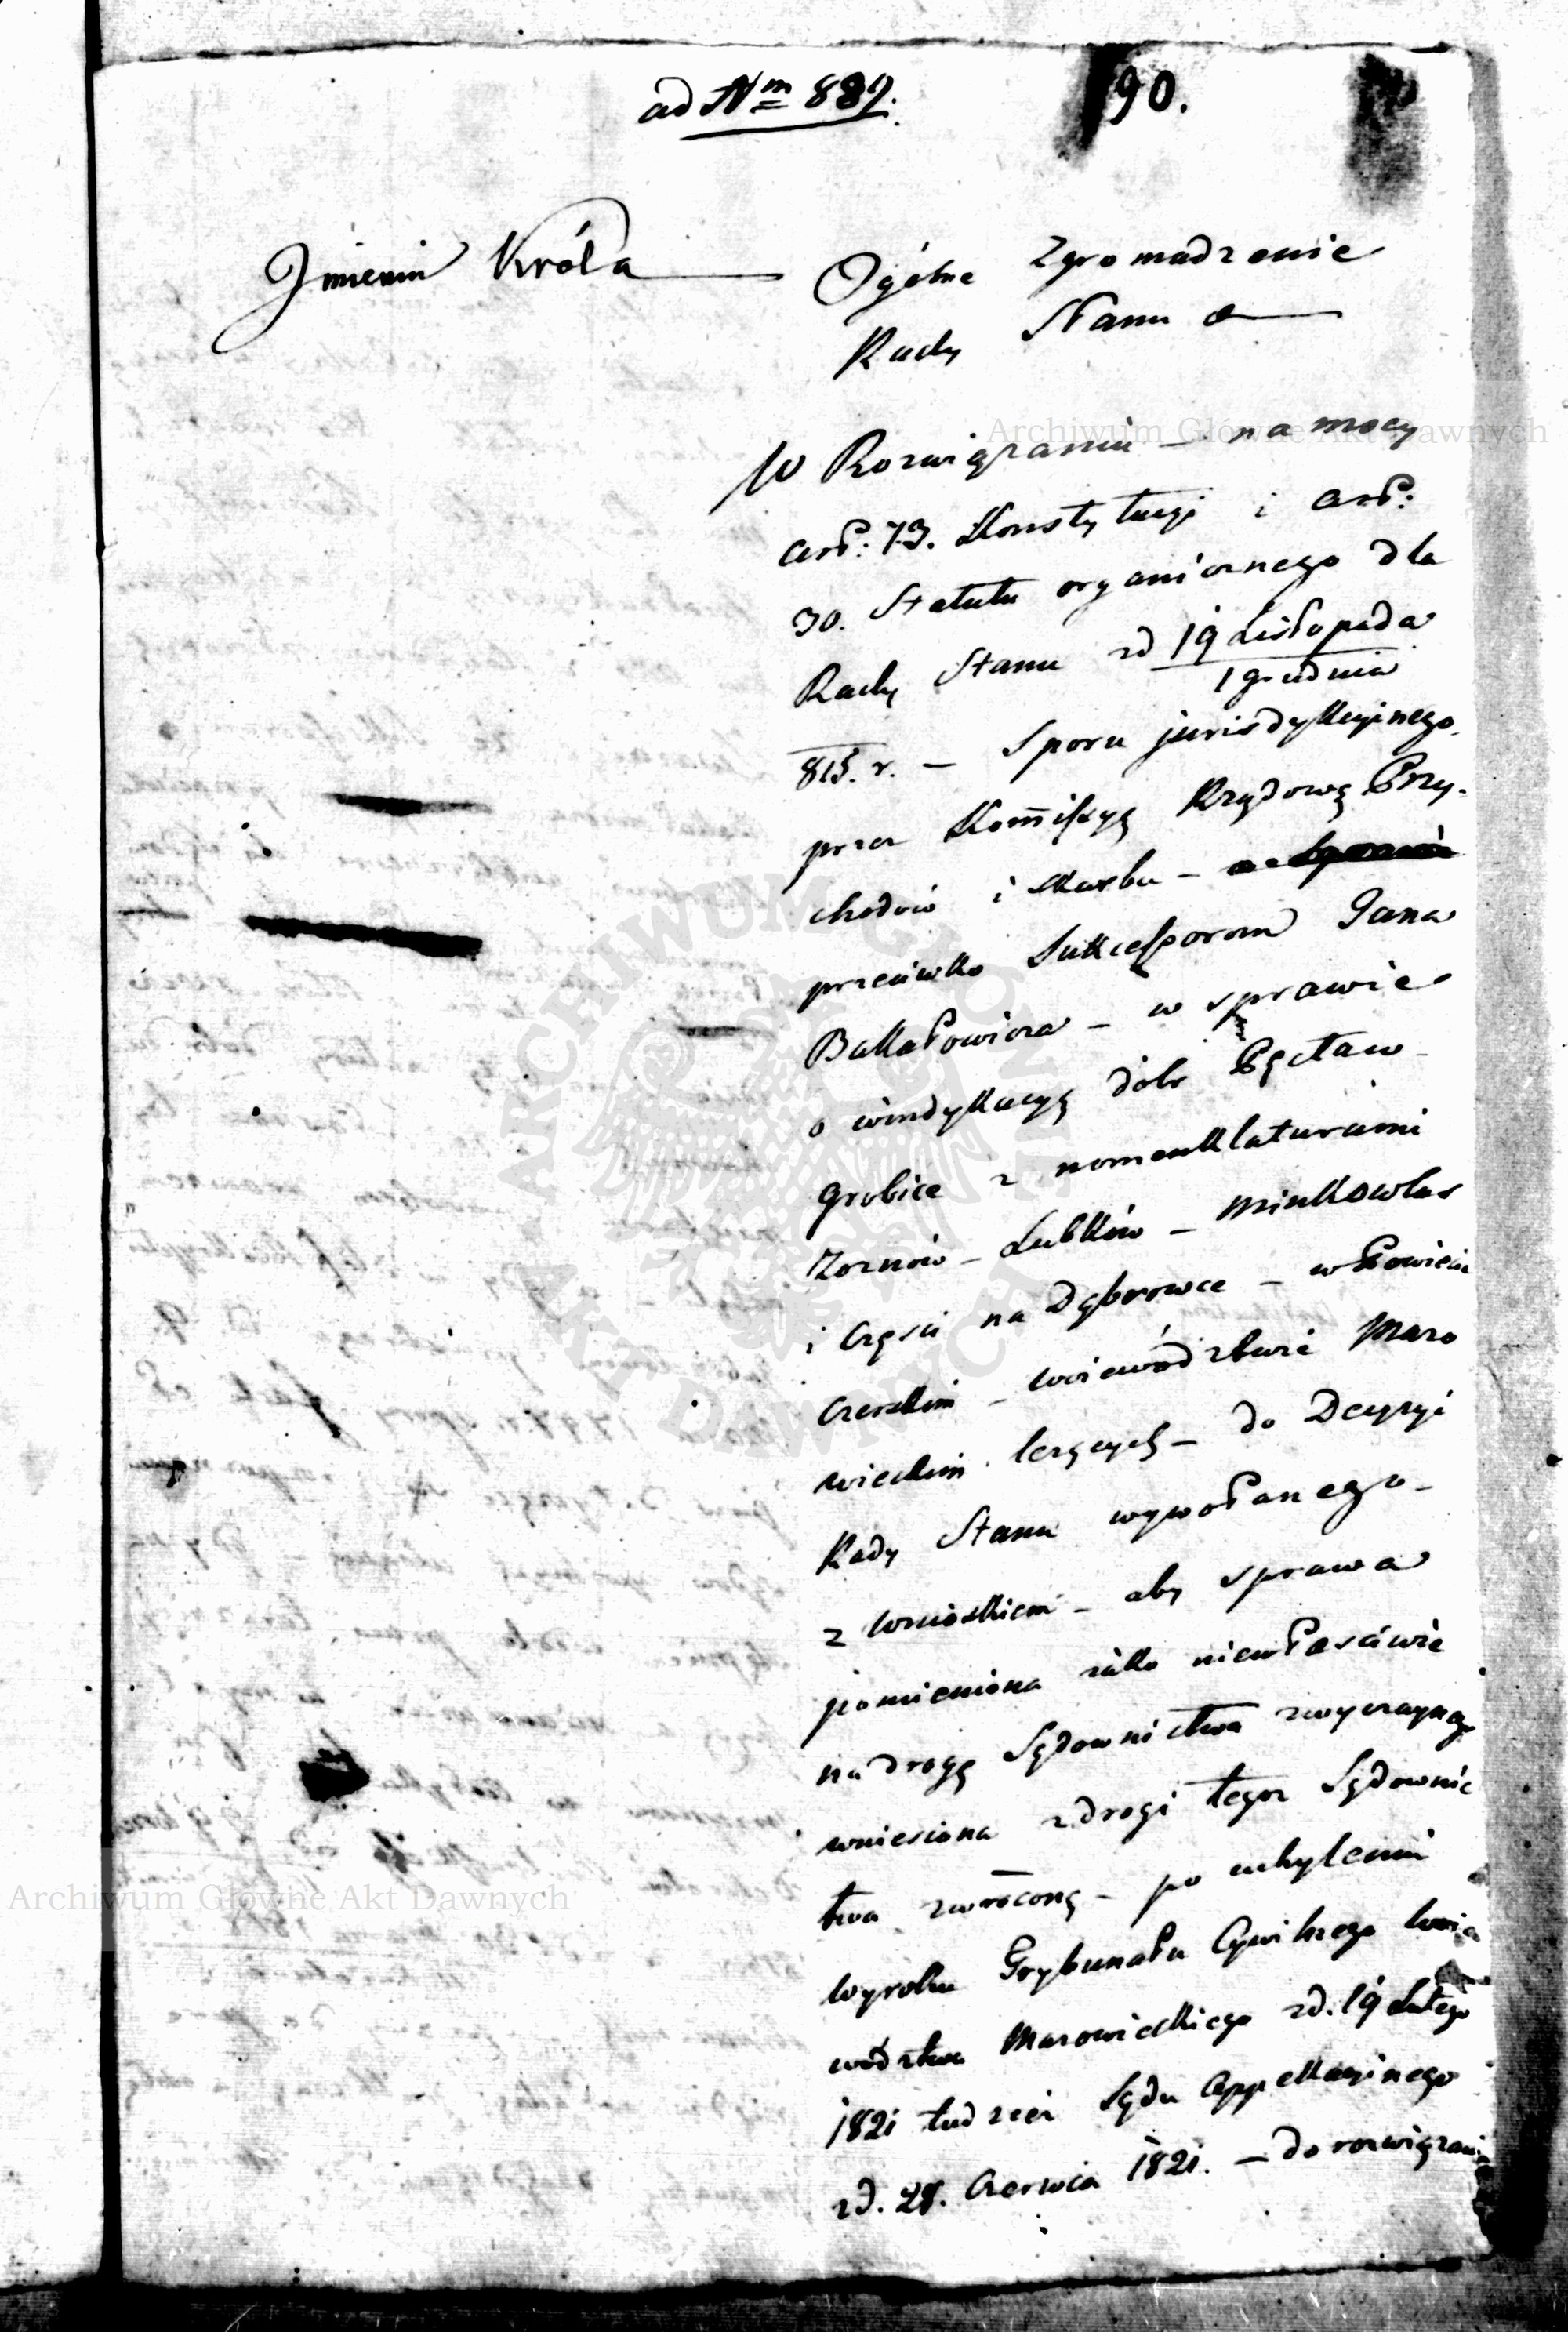 ad Nm 882.
90.
Jmieniu Króla
Ogólne Zgromadzenie
Rady Stanu
W Rozwiązaniu – na mocy
art: 73. Konstytucyi i art:
30. Statutu organicznego dla
Rady Stanu zd 19 Listopada
1 grudnia
815. r. – Sporu jurisdykcyinego
przez Kommissyą Rządową Przy-
chodów i Skarbu –
przeciwko Sukcessorom Jana
Bakałowicza – w sprawie
o windykacyą dóbr Pęcław
Grobice z nomenklaturami
– Lubków – Minkowlas
i Części na Dąbrowce – w Powiecie
Czerskim – Woiewództwie Mazo
wieckim leżących – do Decyzyi
Rady Stanu wywołanego –
z wnioskiem – aby sprawa
pomieniona iako niewłaściwie
na drogę Sądownictwa zwyczaynego
wniesiona z drogi tegoż Sądownic
twa zwróconą – po uchyleniu
wyroku Trybunału Cywilnego Woie
wództwa Mazowieckiego zd. 19 Lutego
1821 tudzież Sądu Appellacyinego
zd. 28. Czerwca 1821. – do rozwiązania
Archiwum Główne Akt Dawnych
Archiwum Główne Akt Dawnych
ARCHIWUM GŁÓWNE AKT DAWNYCH